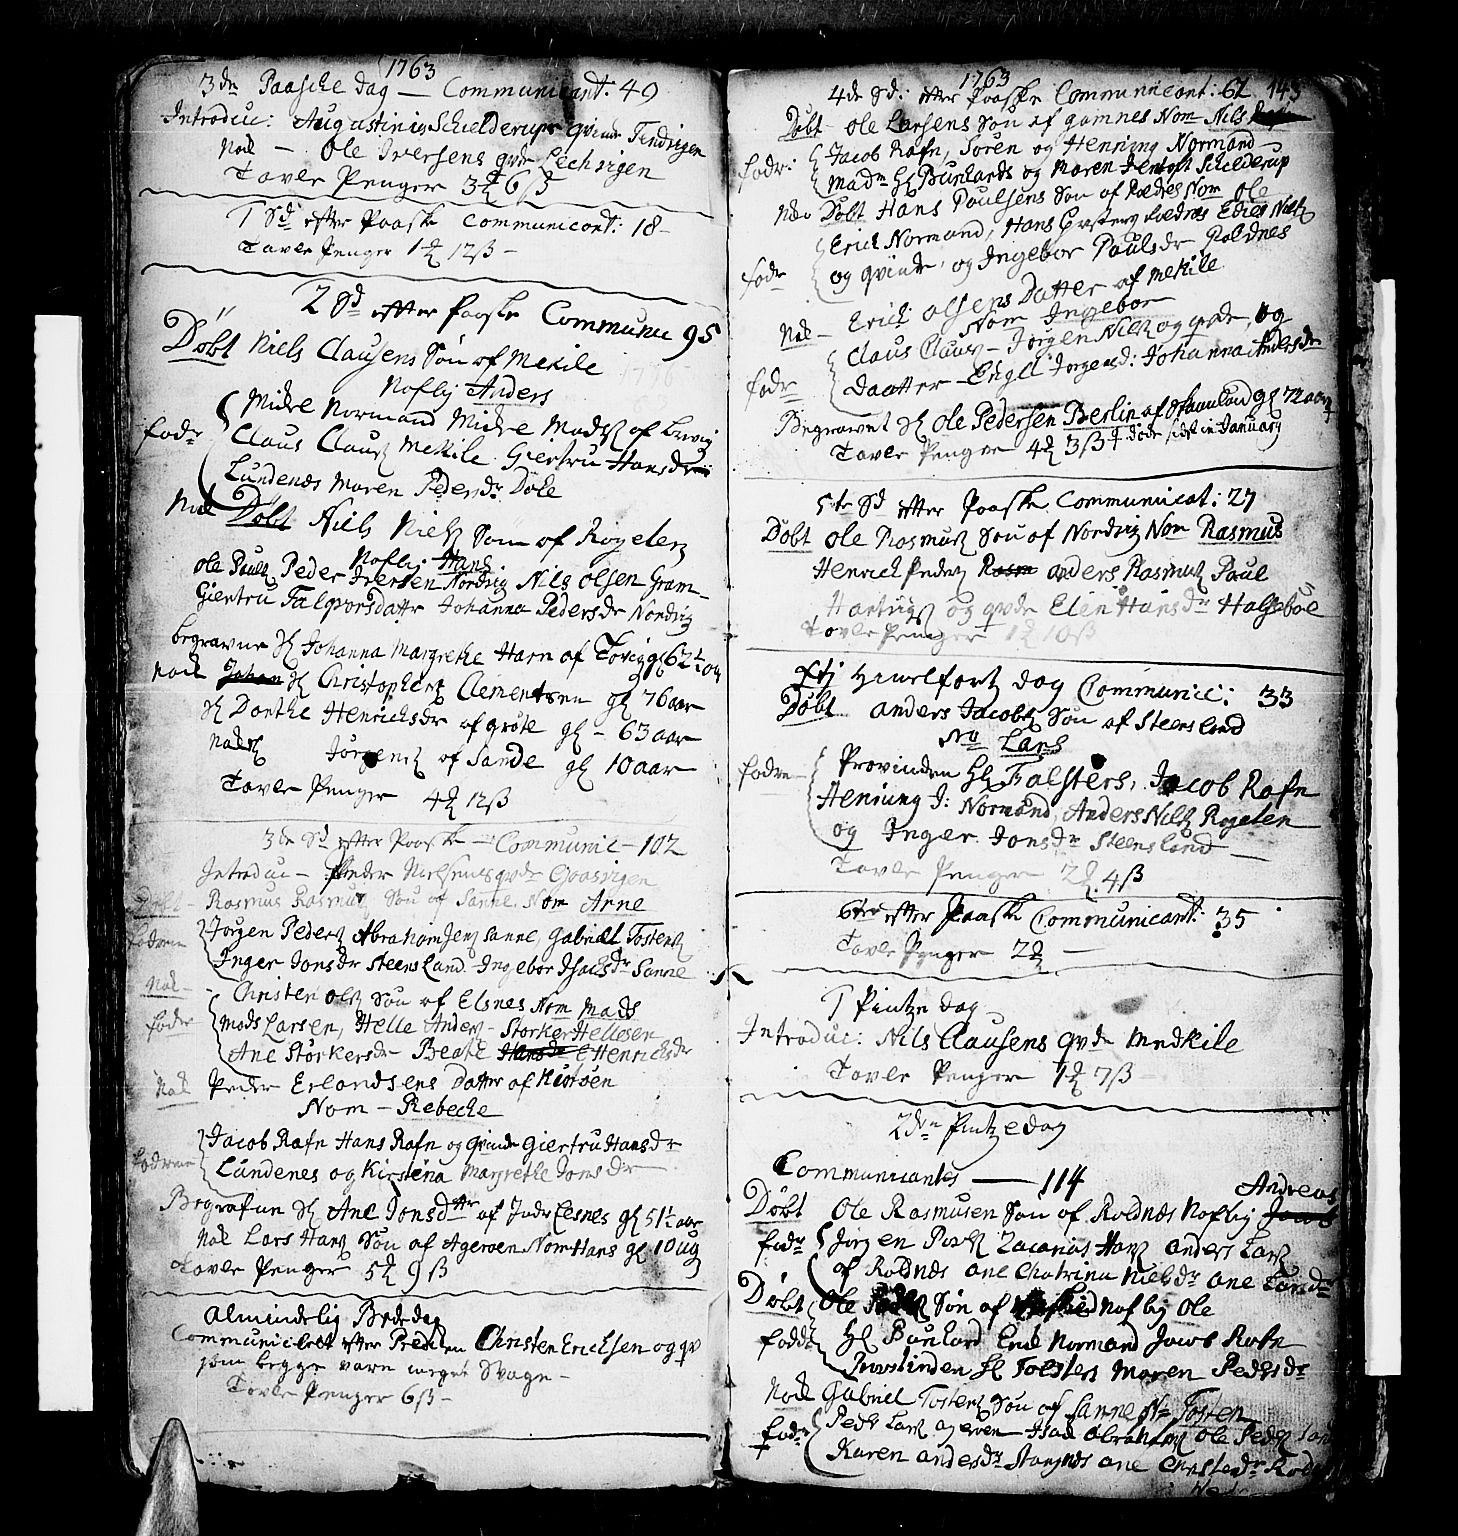 1763
3de Paasche dag — Communicant: 49
Introduc: Augustinius Schielderups qvinde Tendrigen
Nok — Ole Iversens qvde Lechvigen
Tavle Penger 3 6 ß
1 Sd efter Paaske Communicant: 18 –
Tavle Penger 1 12 ß –
2 Sd efter Paaske Communic 95
Döbt Niels Clausens Sön af Mekile
Nofby Anders
Midre Normand Midre Mads af
fadr Claus Claus Mekile Giertru Hansdr
Lundenes Maren Pedersdr Döke
Nok Döbt Niels Niels Sön af Røgelen
Nofby Hans
Ole Pauls Peder Iversen Nordvig Nils Olsen Gram–
Giertru Talqvorsdatr Johanna Pedersdr Nordvig
begravne Johanna Margrethe Harn af Tovig 62½ aar
Nok Christophers Clementsen gl 76 aar
Dorthe Henrichsdr af gröte gl – 63 aar
Nok Jörgens af Sande gl 10 aar
Tavle Penger 4 12 ß
3de Sd efter Paaske – Communic – 102
Introduc – Peder Nielsens qvde Gaasvigen
Döbt – Rasmus Rasmus Sön af Sanne Nom Arne
fadrene Jörgen Peders Abraham Jens Sanne, Gabriel Tostens
Inger Jonsdr Steensland Ingebor Isachsdr Sanne
Nok – Christen Ols Sön af Elsnes Nom Mads
fadr Mads Larsen, Helle Anders – Storker Hellesen
Ane Störkersdr Beate Henrichsdr
Nok Peder Erlandsens Datter af
Nom – Rebecke
fadrene Jacob Rafn Hans Rafn og qvinde Giertru Hansdr
Lundenes og Kirstina Margrethe Jonsdr
Begrafven Ane Jonsdatr af Indr Elsnes gl 51½ aar
Nok Lars Hans Sön af Ageroen Nom Hans gl 10 ug
Tavle Penger 5 9 ß
Almindelig Bededag
Communiceret efter Preken Christen Ericksen og qv
som begge vare meget Svage –
Tavle Penger 6 ß –
1763 143
4de Sd: efter Paaske Communicant: 62
Döbt – Ole Larsens Sön af gamnes Nom Nils
fadr: Jacob Rafn, Sören og Henning Normand
Madm Hl Burchards og Maren Schielderup
Nok Döbt Hans Paulsens Sön af Roldnes Nom Ole
Erich Normand, Hans Roldnes Nils
fadr og qvinde, og Ingebor Paulsdr Roldnes
Nok – Erich Olsens Datter af Mekile
Nom Ingebor
Claus Claus – Jörgen Nils og qvde, og
fadr daatter – Engel Jörgensd: Johanna Andersdr
Begravet Ole Pedersen Berlin af gl 72 aar
Tavle Penger 4 3 ß † döde sidst in January
5te Sd efter Paaske Communicat: 27
Döbt Ole Rasmus Sön af Nordvig Nom Rasmus
Henrich Peders Anders Rasmus Paul
Hartvigs og qvde Elen Hansdr Halseböe
Tavle Penger 1 10 ß
Xstj Himelfarts dag Communic: 33
Döbt Anders Jacobs Sön af Steensland
No Lars
fadrne – Provinden Hl Falsters, Jacob Rafn
Henning J: Normand, Anders Nils Rogelen
og Inger Jonsdr Steensland –
Tavle Penger 2 4 ß
6te efter Paaske Communicant: 35
Tavle Penger 2 —
1 Pintze dag
Introduc: Nils Clausens qvde Medkile
Tavle Penger 1 7 ß
2den Pintzedag
Communicantes — 114
Andreas
Döbt Ole Rasmusen Sön af Roldnes Nofby Jacob
fadr Jörgen Povls Zacarias Hans Anders Lars
af Roldnes Ane Chatrina Nielsdr Ane
Döbt Ole Sön af Nofby Ole
fadd: Hl Bunkard Erik Normand Jacob Rafn
Provstinden Hl Falsters Maren Pedersdr
Nok Gabriel Tostens Sön af Sanne No Tosten
fadr Peder Lars Ageroen Isac Abrahams Ole Peders
Karen Andersdr Ane Christensdr